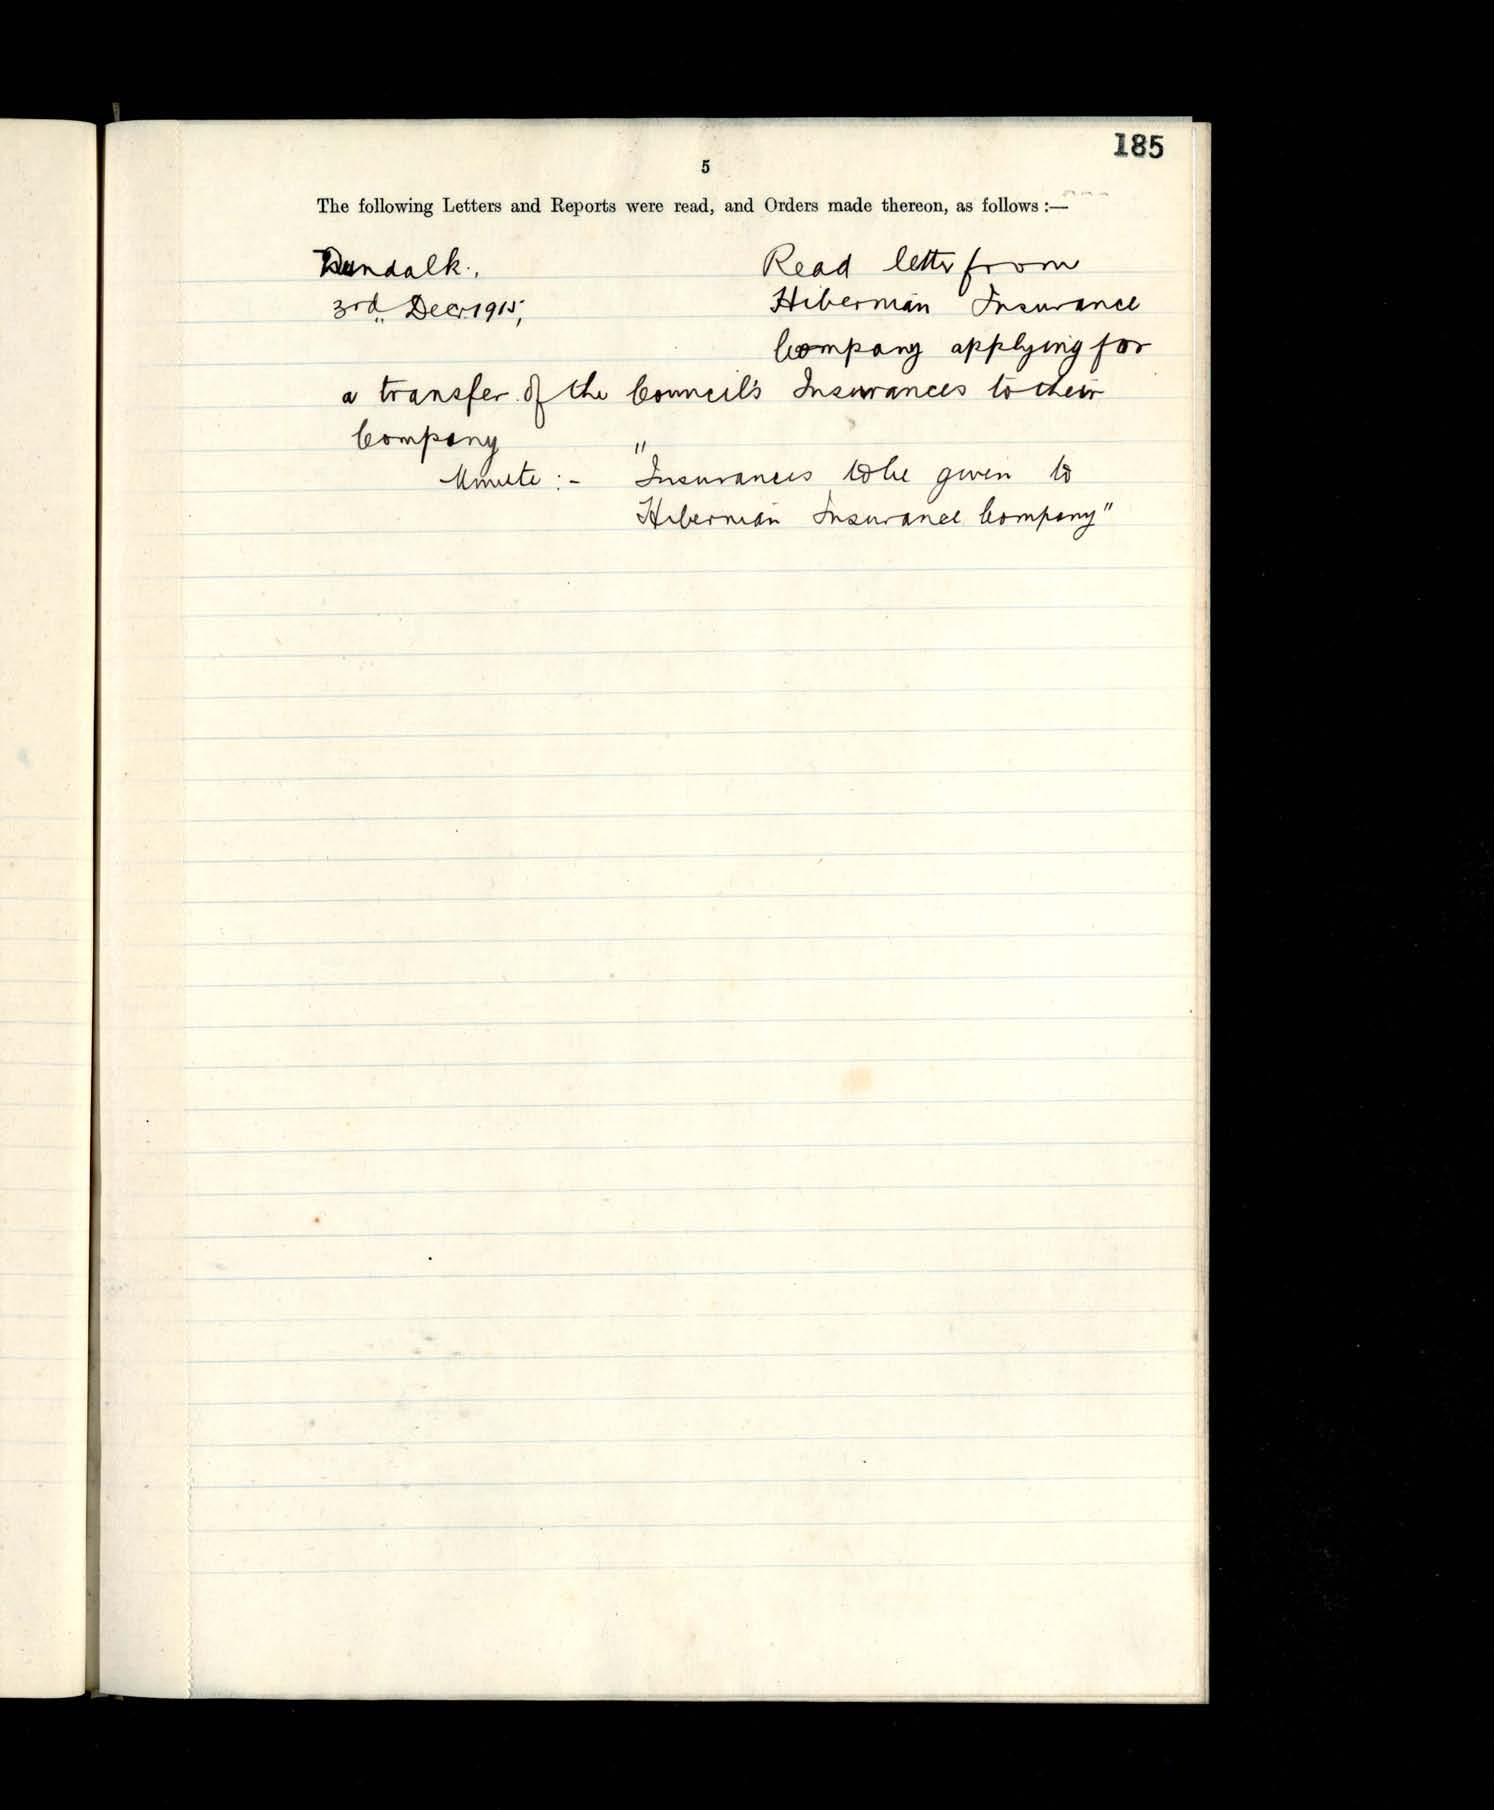 185
5
The following Letters and Reports were read, and Orders made thereon, as follows :—
Dundalk.,
3rd Decr. 1915,
Read letter from
Hibernian Insurance
Company applying for
a transfer of the Council's Insurances to their
Company
Minute :- "Insurances to be given to
Hibernian Insurance Company"